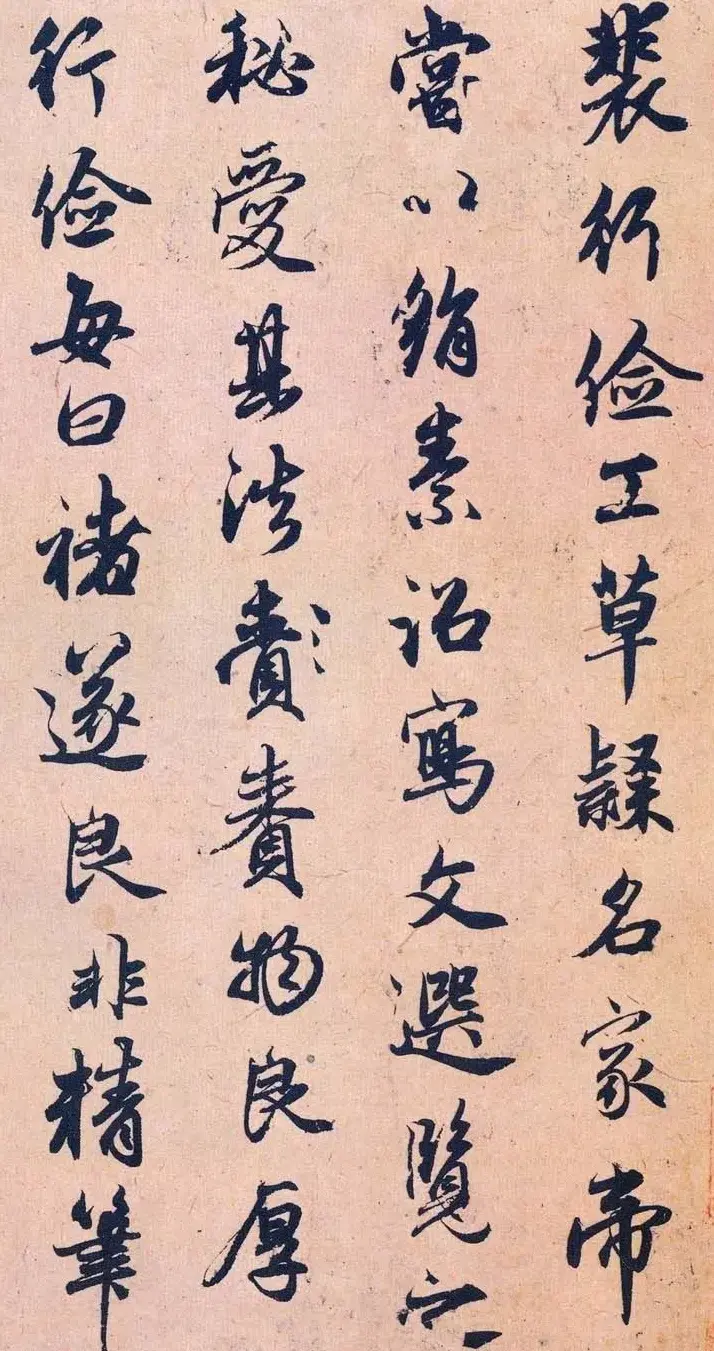 裴行俭工草隸名家帝
嘗以絹素詔寫文選覽之
秘愛其法賚物良厚
行俭每曰褚遂良非精筆